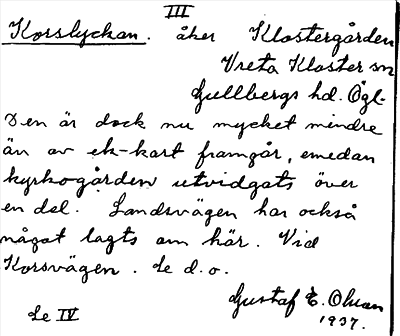 III
Korslyckan. åker Klostergården
Vreta Kloster sn
Gullbergs hd. Ögl.
Den är dock nu mycket mindre
än av ek-kart framgår, emedan
kyrkogården utvidgats över
en del. Landsvägen har också
något lagts om här. Vid
Korsvägen. Se d.o.
Gustaf E. Olson
Se IV
1937.